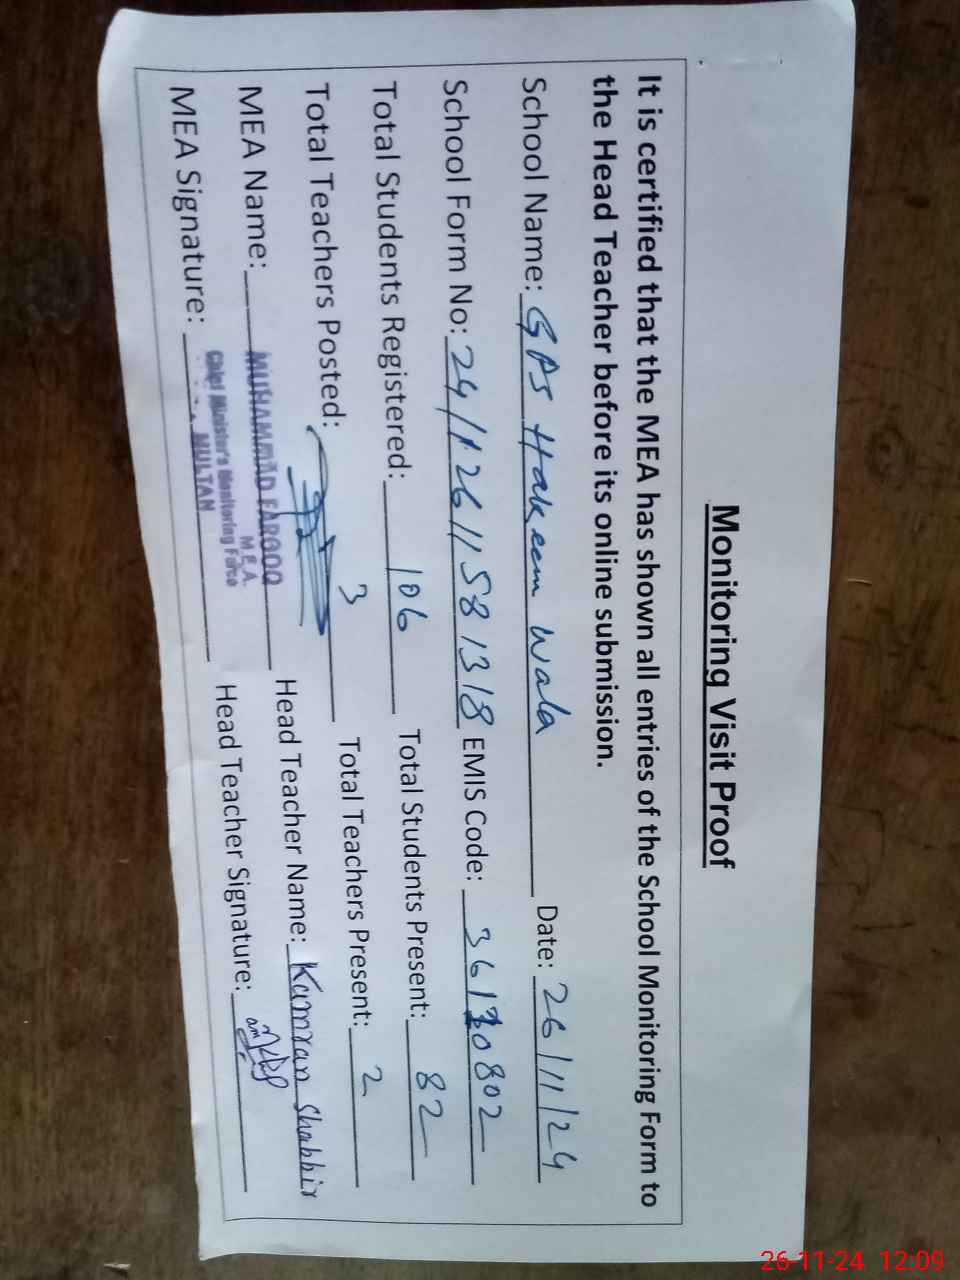 Monitoring Visit Proof
It is certified that the MEA has shown all entries of the School Monitoring Form to
the Head Teacher before its online submission.
School Name: GPS Hakeem Wala Date: 26/11/24
School Form No: 24/12611581318 EMIS Code: 36110802
Total Students Registered: 106 Total Students Present: 82
Total Teachers Posted: 3 Total Teachers Present: 2
MEA Name: MUHAMMAD FAROOQ Head Teacher Name: Kamran Shabbir
M.E.A.
Chief Minister's Monitoring Force
MEA Signature: MULTAN Head Teacher Signature:
26-11-24 12:09